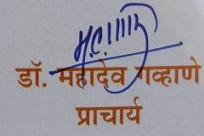 डॉ. महादेव गव्हाणे
प्राचार्य